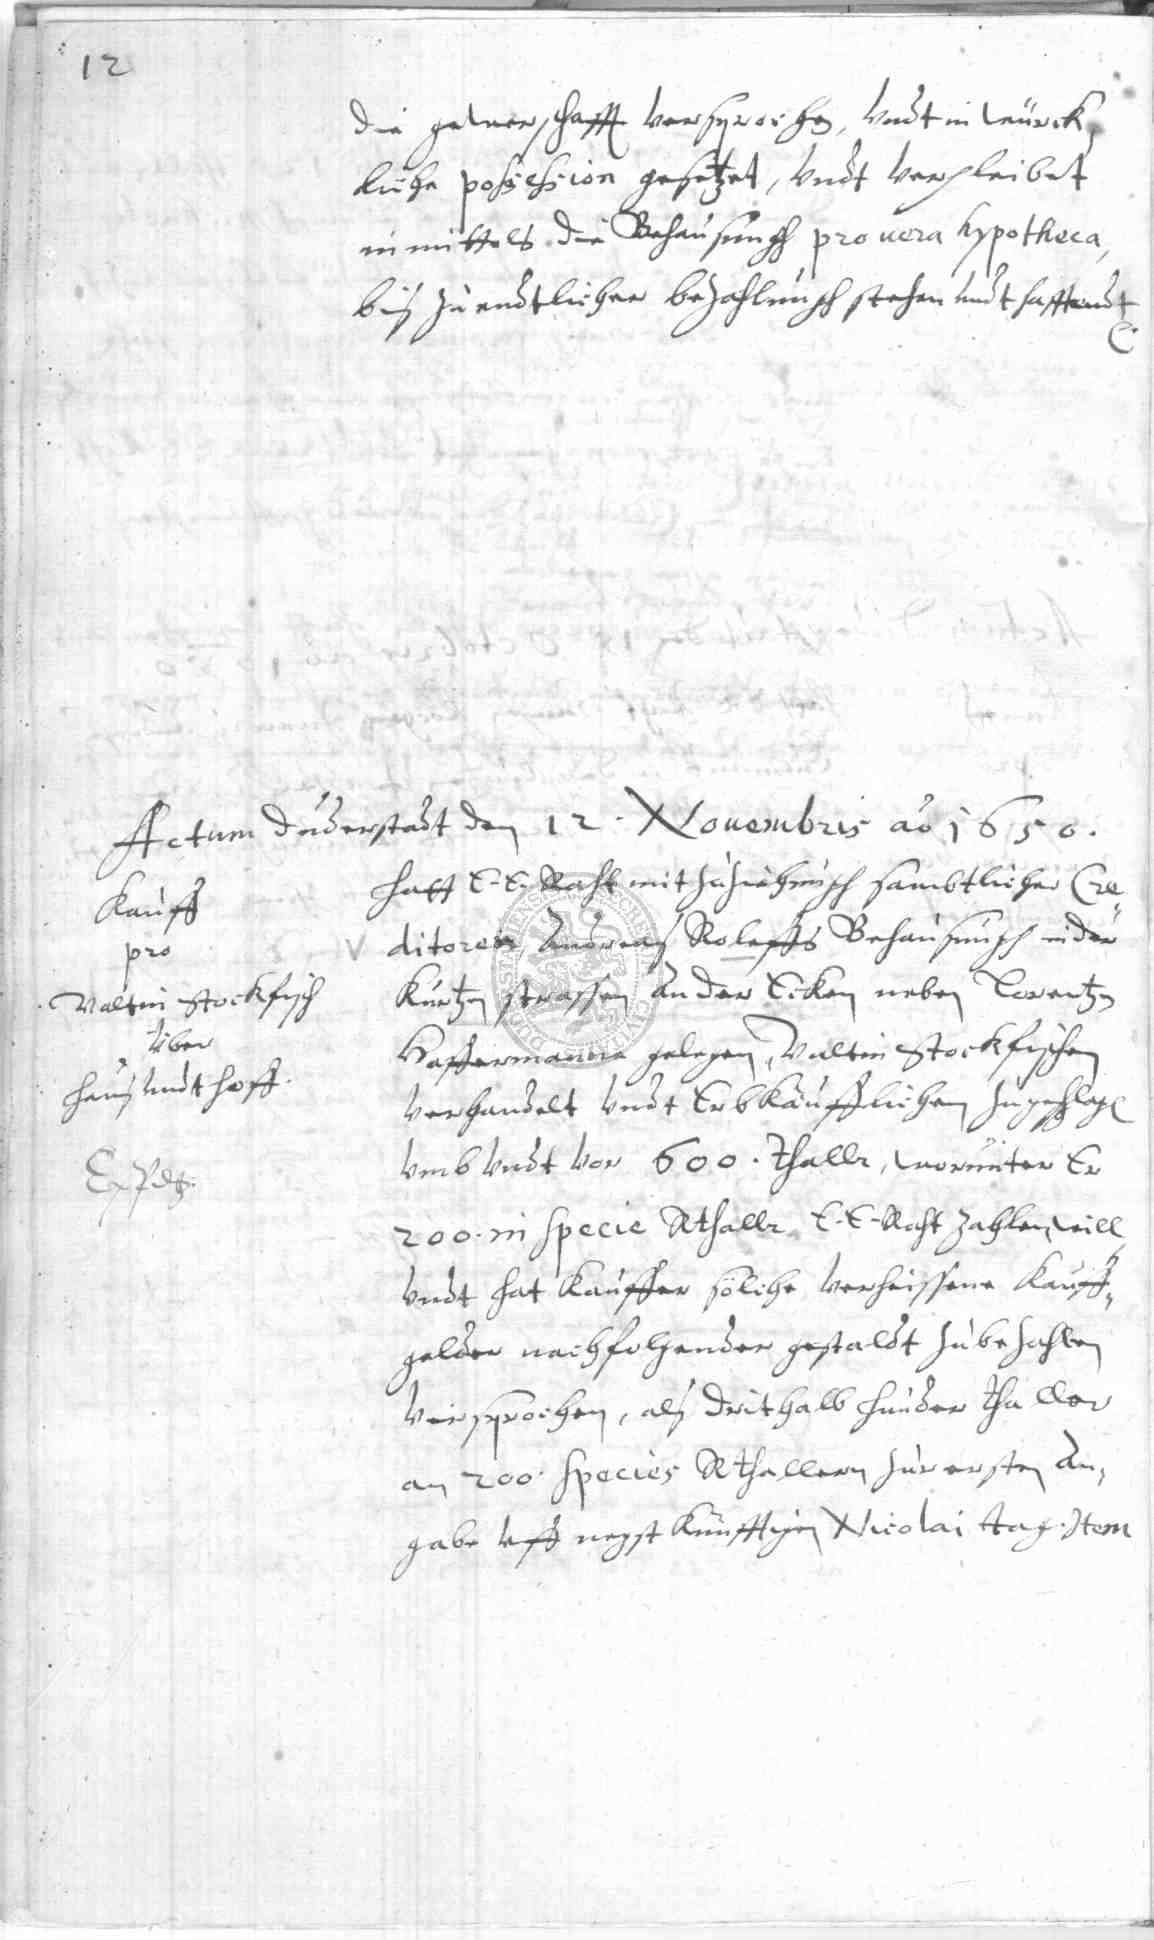 12
die gewerschafft versprochen, undt in würck,
liche possession gesetzet, undt verpleibet
inmittels die Behausungh pro vera hypotheca,
biß zu endtlicher bezahlungh stehen undt hafftendt
Actum Duderstadt den 12. Novembris ao 1650.
Kauff
pro
Valtin Stockfisch
über
hauß undt hoff.
hatt E. E. Raht mit zuziehungh sambtlicher Cre,
ditoren Andreaß Roleffs Behausungh in der
Kurtzen strassen An der Ecken neben Lorentz
Haffermanne gelegen, Valtin Stockfischen
verhandelt undt Erbkäufflichen zugeschlagen
umb undt vor 600. thallr, worunter Er
200. in specie Rthallr E. E. Raht zahlen will
undt hat Kauffer solche verheissene Kauff,
gelder nachfolgender gestaldt zu bezahlen
versprochen, alß drithalb hunder thaller
an 200. species Rthallern zur ersten An,
gabe uff negst künfftigen Nicolai tag. Item